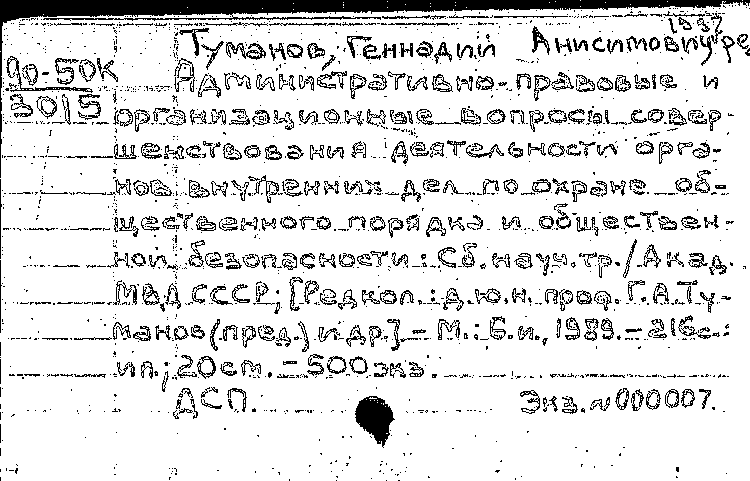 1932
Туманов, Геннадий Анисимович, ред.
90-50К
3015
Административно-правовые и
организационные вопросы совер-
шенствования деятельности орга-
нов внутренних дел по охране об-
щественного порядка и обществен-
ной безопасности: Сб. науч. тр. / Акад.
МВД СССР; [Редкол.: д.ю.н. проф. Г.А.Ту-
манов (пред.) и др.] - М.: Б.и., 1989. - 216с.:
ил.; 20см. - 500 экз.
ДСП. Экз. N 000007.